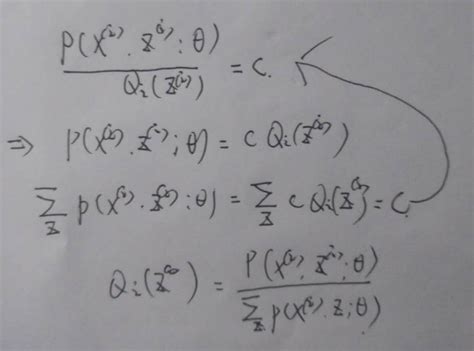 P(X⁽ⁱ⁾, Z⁽ⁱ⁾; θ) / Qᵢ(Z⁽ⁱ⁾) = C.
⇒ P(X⁽ⁱ⁾, Z⁽ⁱ⁾; θ) = C Qᵢ(Z⁽ⁱ⁾)
∑_Z P(X⁽ⁱ⁾, Z⁽ⁱ⁾; θ) = ∑_Z C Qᵢ(Z⁽ⁱ⁾) = C
Qᵢ(Z⁽ⁱ⁾) = P(X⁽ⁱ⁾, Z⁽ⁱ⁾; θ) / ∑_Z P(X⁽ⁱ⁾, Z; θ)